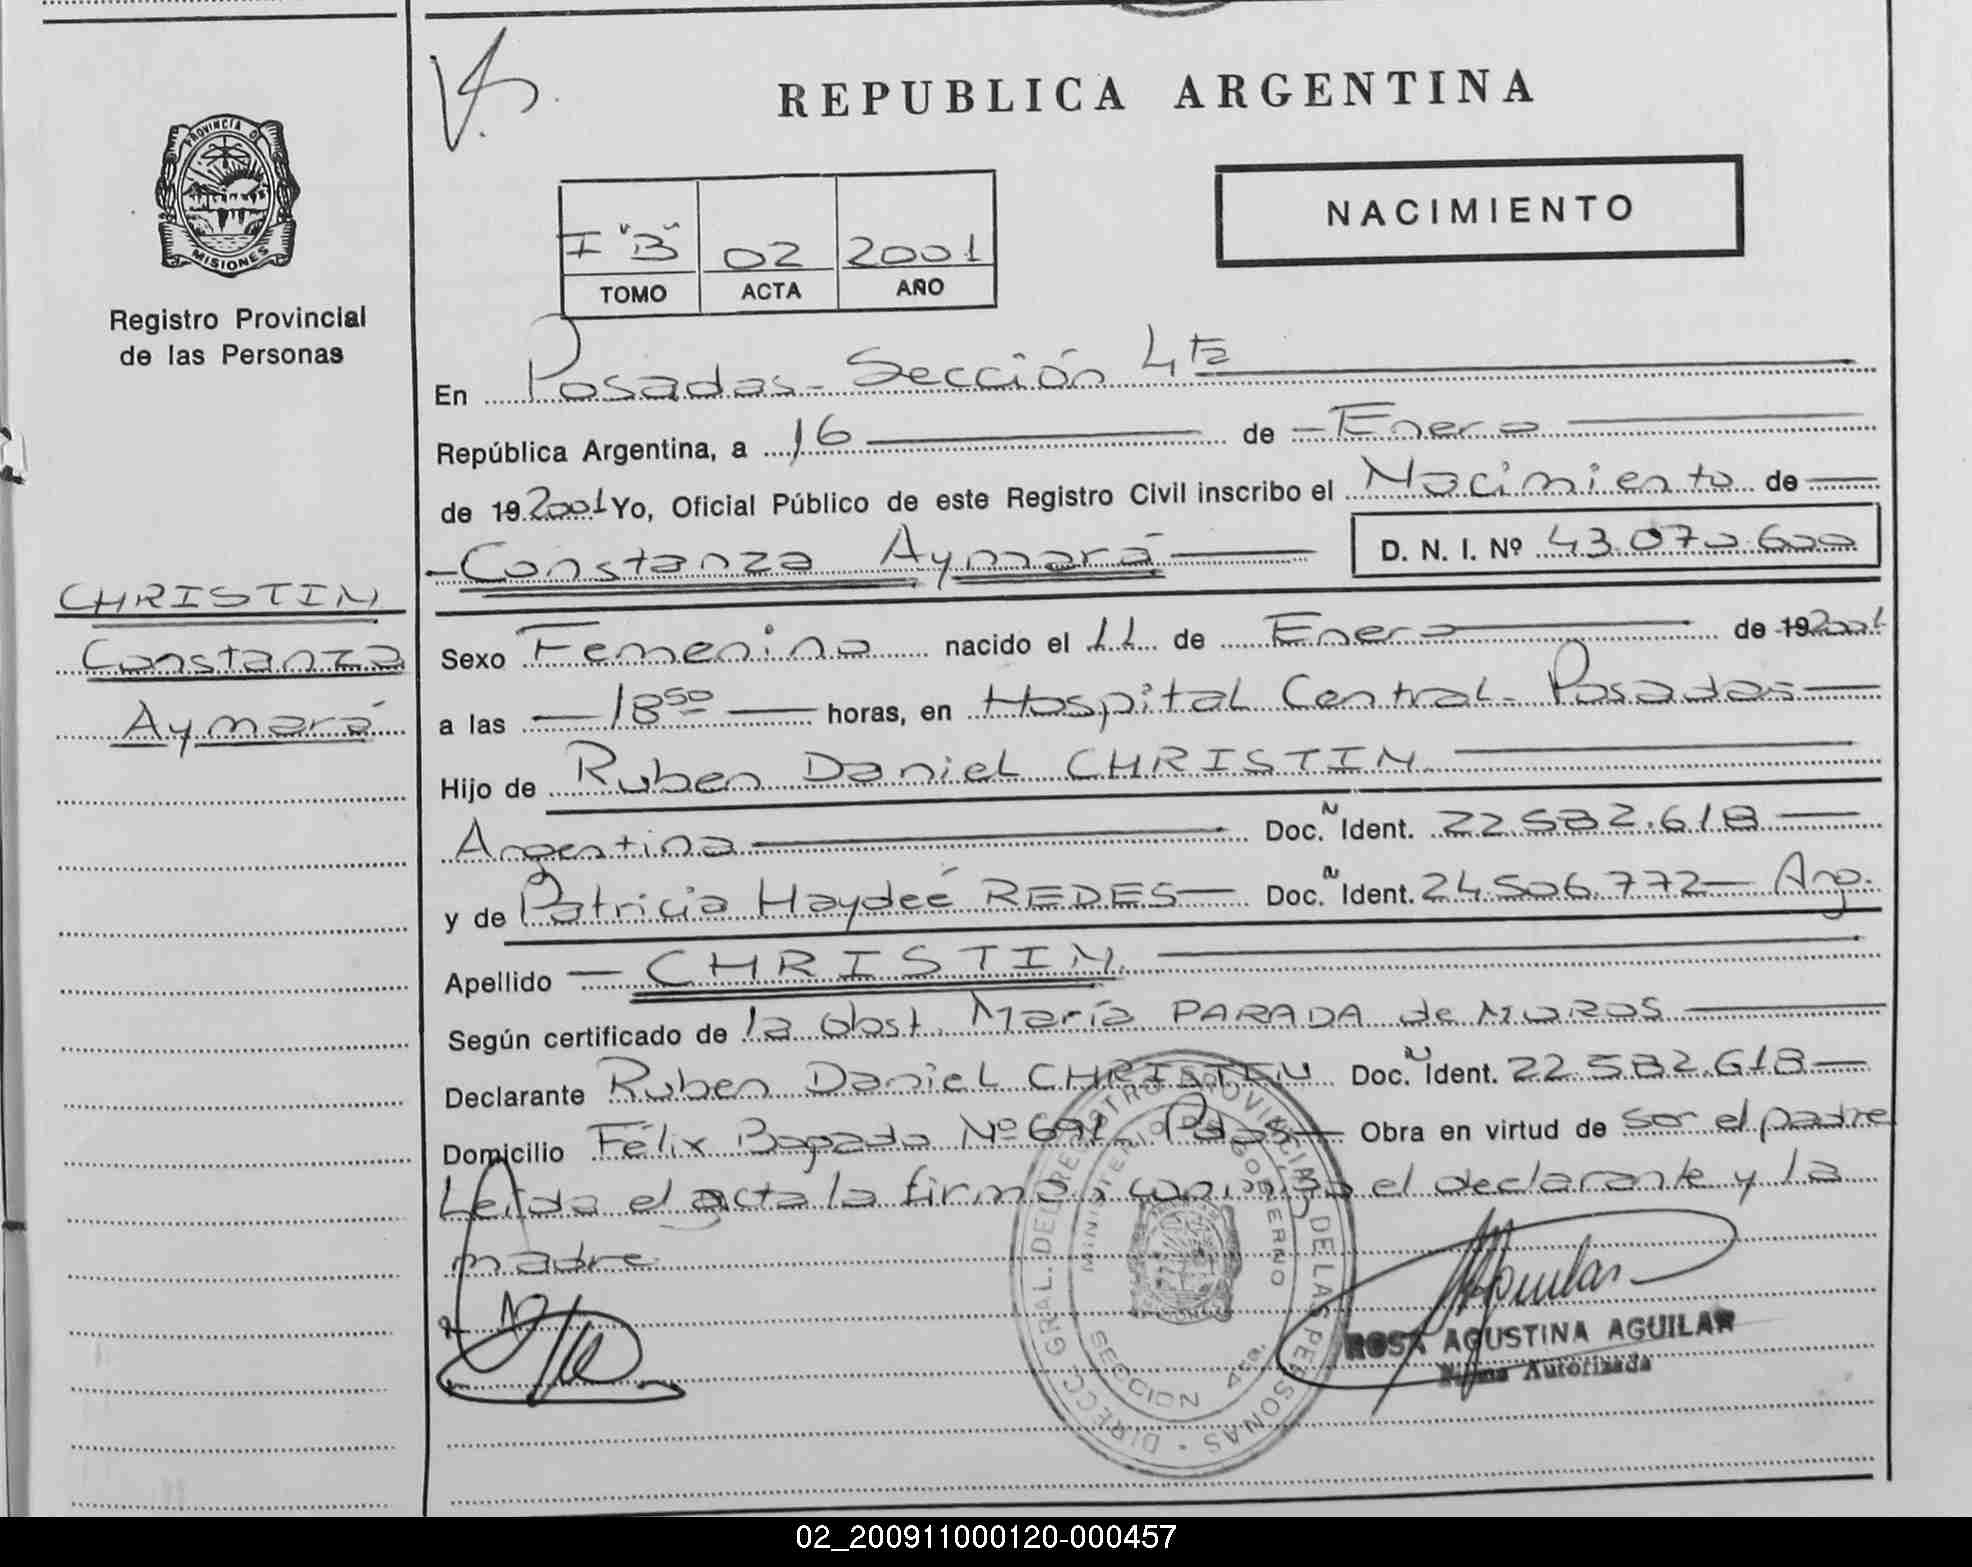 REPUBLICA ARGENTINA
PROVINCIA DE
MISIONES
Registro Provincial
de las Personas
NACIMIENTO
I "B" 02 2001
TOMO ACTA AÑO
En Posadas - Sección 4ta
República Argentina, a 16 de Enero
de 19 2001 Yo, Oficial Público de este Registro Civil inscribo el Nacimiento de
Constanza Aymará D. N. I. Nº 43.070.600
CHRISTIN
Constanza
Aymará
Sexo Femenino nacido el 11 de Enero de 19 2001
a las 18 50 horas, en Hospital Central - Posadas
Hijo de Ruben Daniel CHRISTIN
Argentina Doc. Ident. 22.582.618
y de Patricia Haydeé REDES Doc. Ident. 24.506.772 - Arg.
Apellido CHRISTIN
Según certificado de la obst. María PARADA de MOROS
Declarante Ruben Daniel CHRISTIN Doc. Ident. 22.582.618
Domicilio Félix Bogado Nº 691 - Pdas Obra en virtud de ser el padre
Leída el acta la firma conmigo el declarante y la
madre
DIRECC. GRAL. DEL REGISTRO PROVINCIAL DE LAS PERSONAS
MINISTERIO GOBIERNO
SECCION 4ta.
ROSA AGUSTINA AGUILAR
Firma Autorizada
02_200911000120-000457